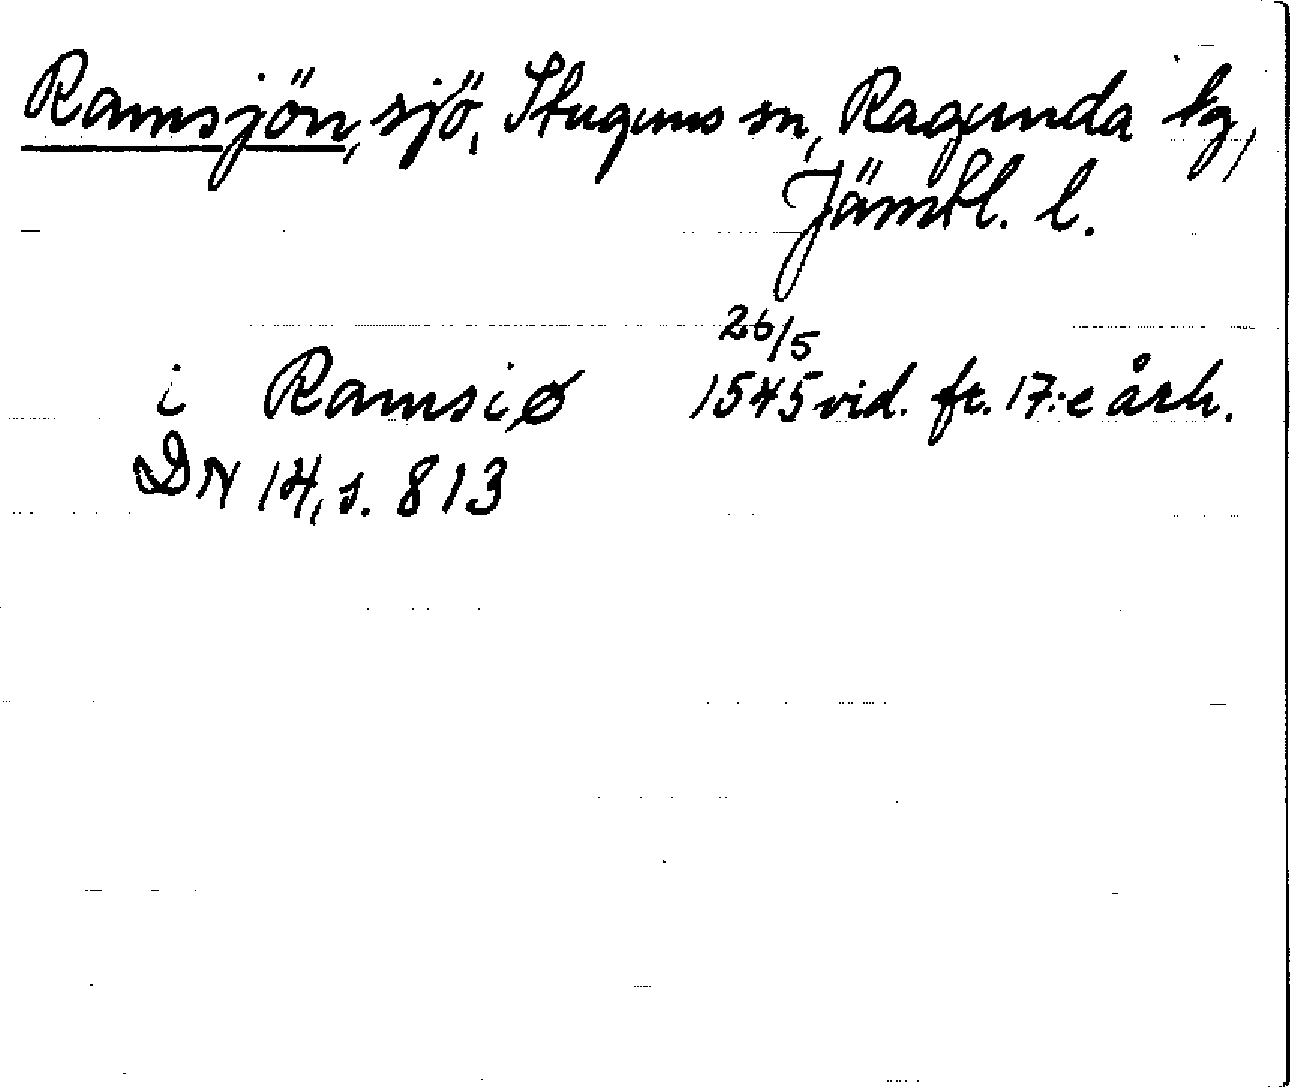 Ramsjön, sjö, Stuguns sn, Ragunda tg,
Jämtl. l.
26/5
i Ramsiø 1545 vid. fr. 17:e årh.
DN 14, s. 813